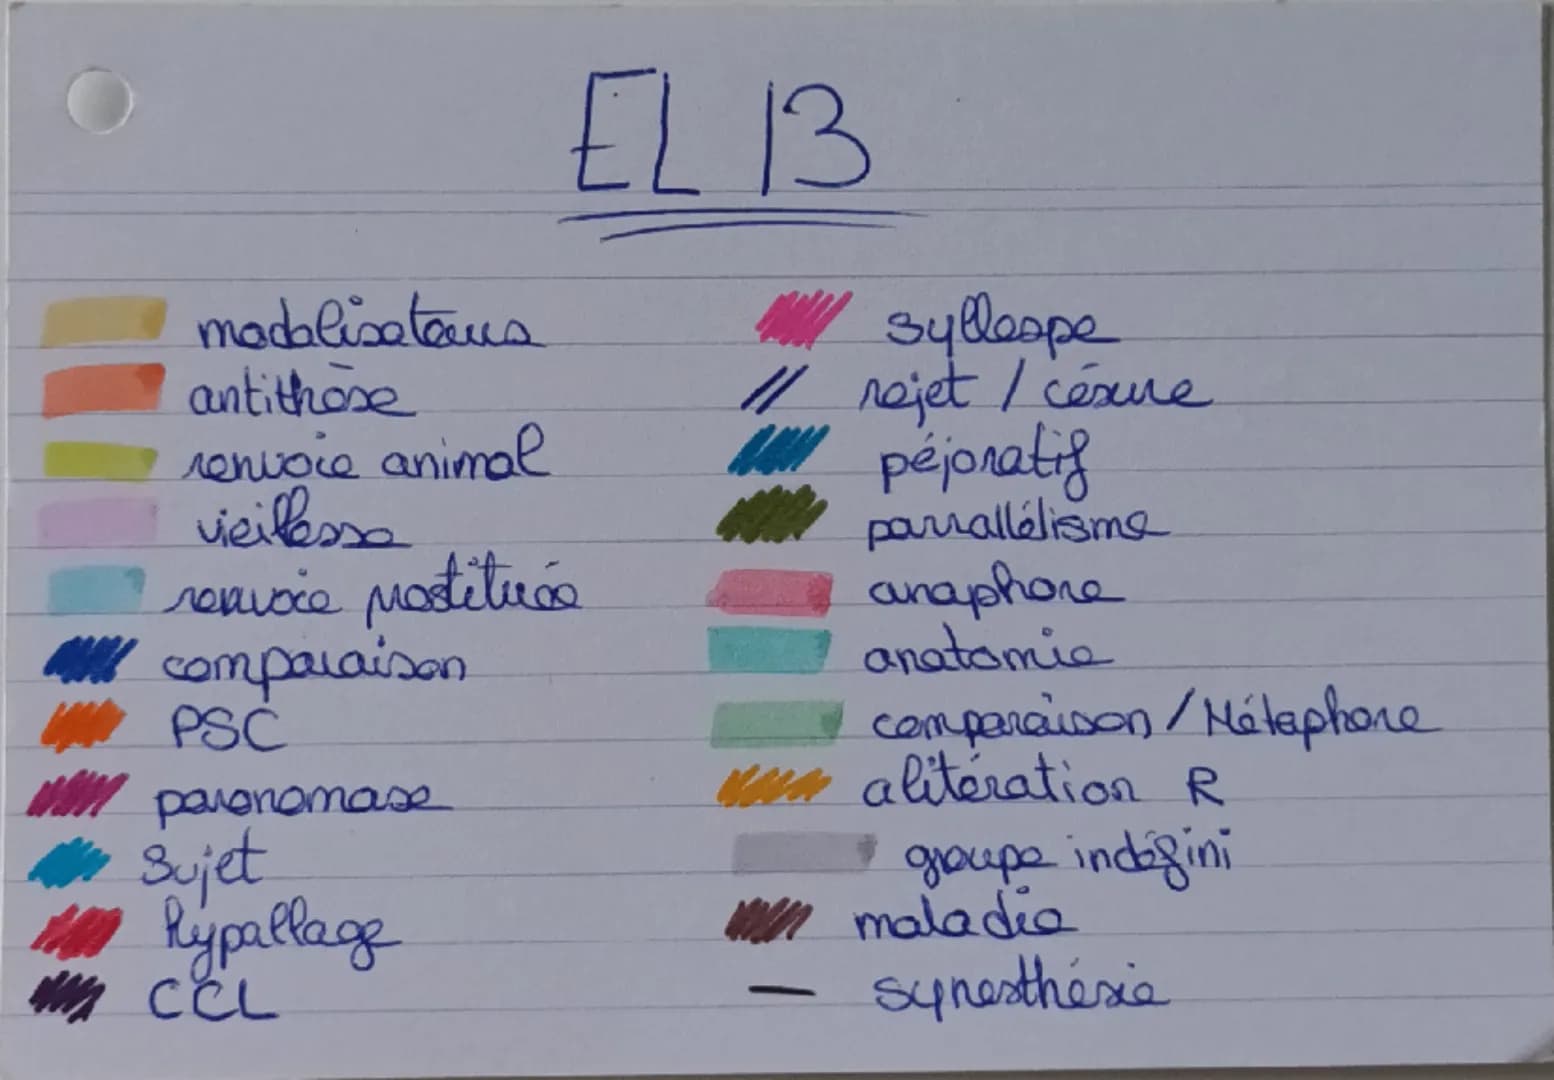 EL 13
modalisateurs
antithèse
renvoie animal
vieillesse
renvoie prostituée
comparaison
PSC
paronomase
Sujet
hypallage
CCL
syllespe
// rejet / césure
péjoratif
parrallélisme
anaphore
anatomie
comparaison / Métaphore
alitération R
groupe indéfini
maladie
— synesthésie